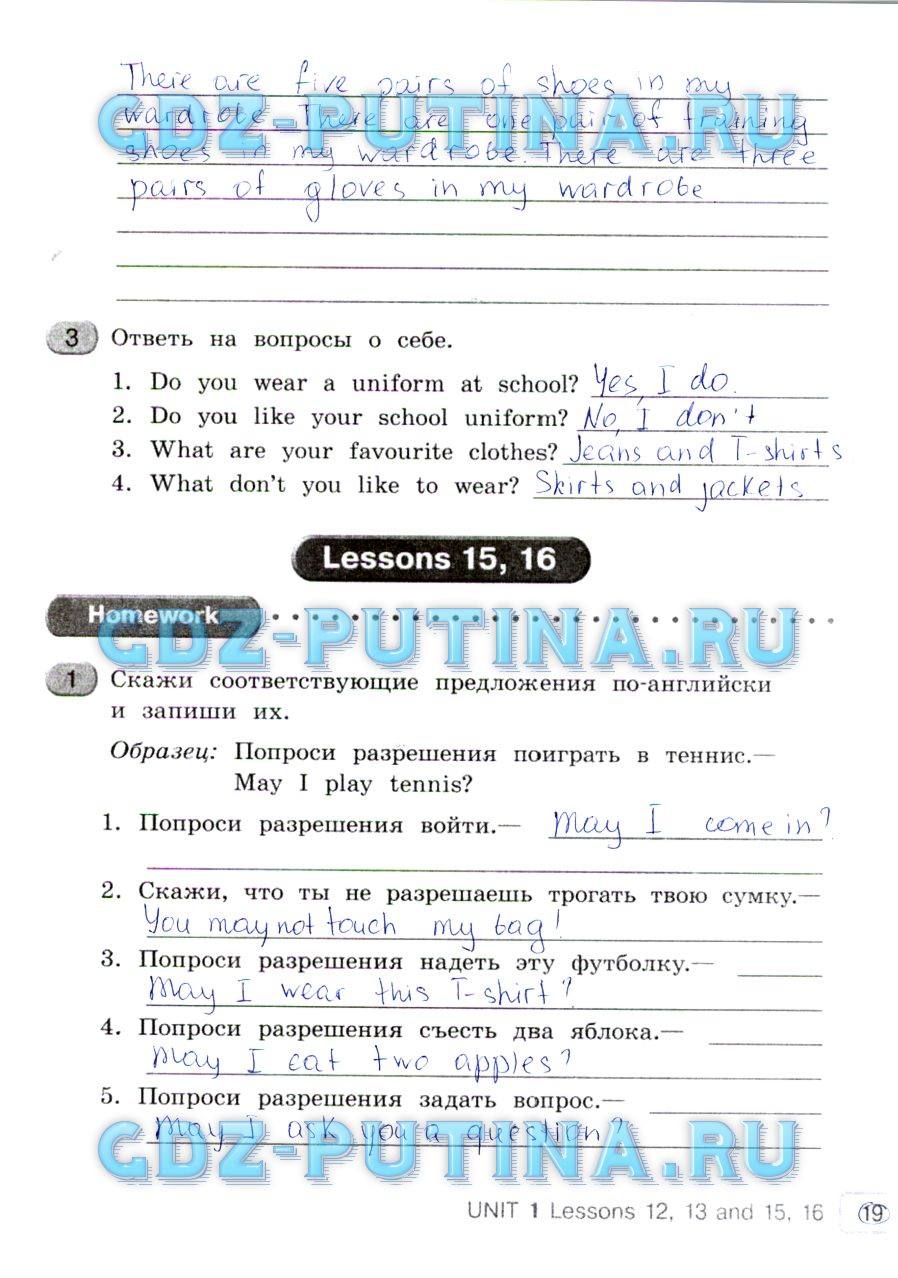 There are five pairs of shoes in my
wardrobe. There are one pair of training
shoes in my wardrobe. There are three
pairs of gloves in my wardrobe
GDZ-PUTINA.RU
3 Ответь на вопросы о себе.
1. Do you wear a uniform at school? Yes, I do.
2. Do you like your school uniform? No, I don't
3. What are your favourite clothes? Jeans and T-shirts
4. What don't you like to wear? Skirts and jackets
Lessons 15, 16
Homework
GDZ-PUTINA.RU
1 Скажи соответствующие предложения по-английски
и запиши их.
Образец: Попроси разрешения поиграть в теннис.—
May I play tennis?
1. Попроси разрешения войти.— May I come in?
2. Скажи, что ты не разрешаешь трогать твою сумку.—
You may not touch my bag!
3. Попроси разрешения надеть эту футболку.—
May I wear this T-shirt?
4. Попроси разрешения съесть два яблока.—
May I eat two apples?
5. Попроси разрешения задать вопрос.—
May I ask you a question?
GDZ-PUTINA.RU
UNIT 1 Lessons 12, 13 and 15, 16 19